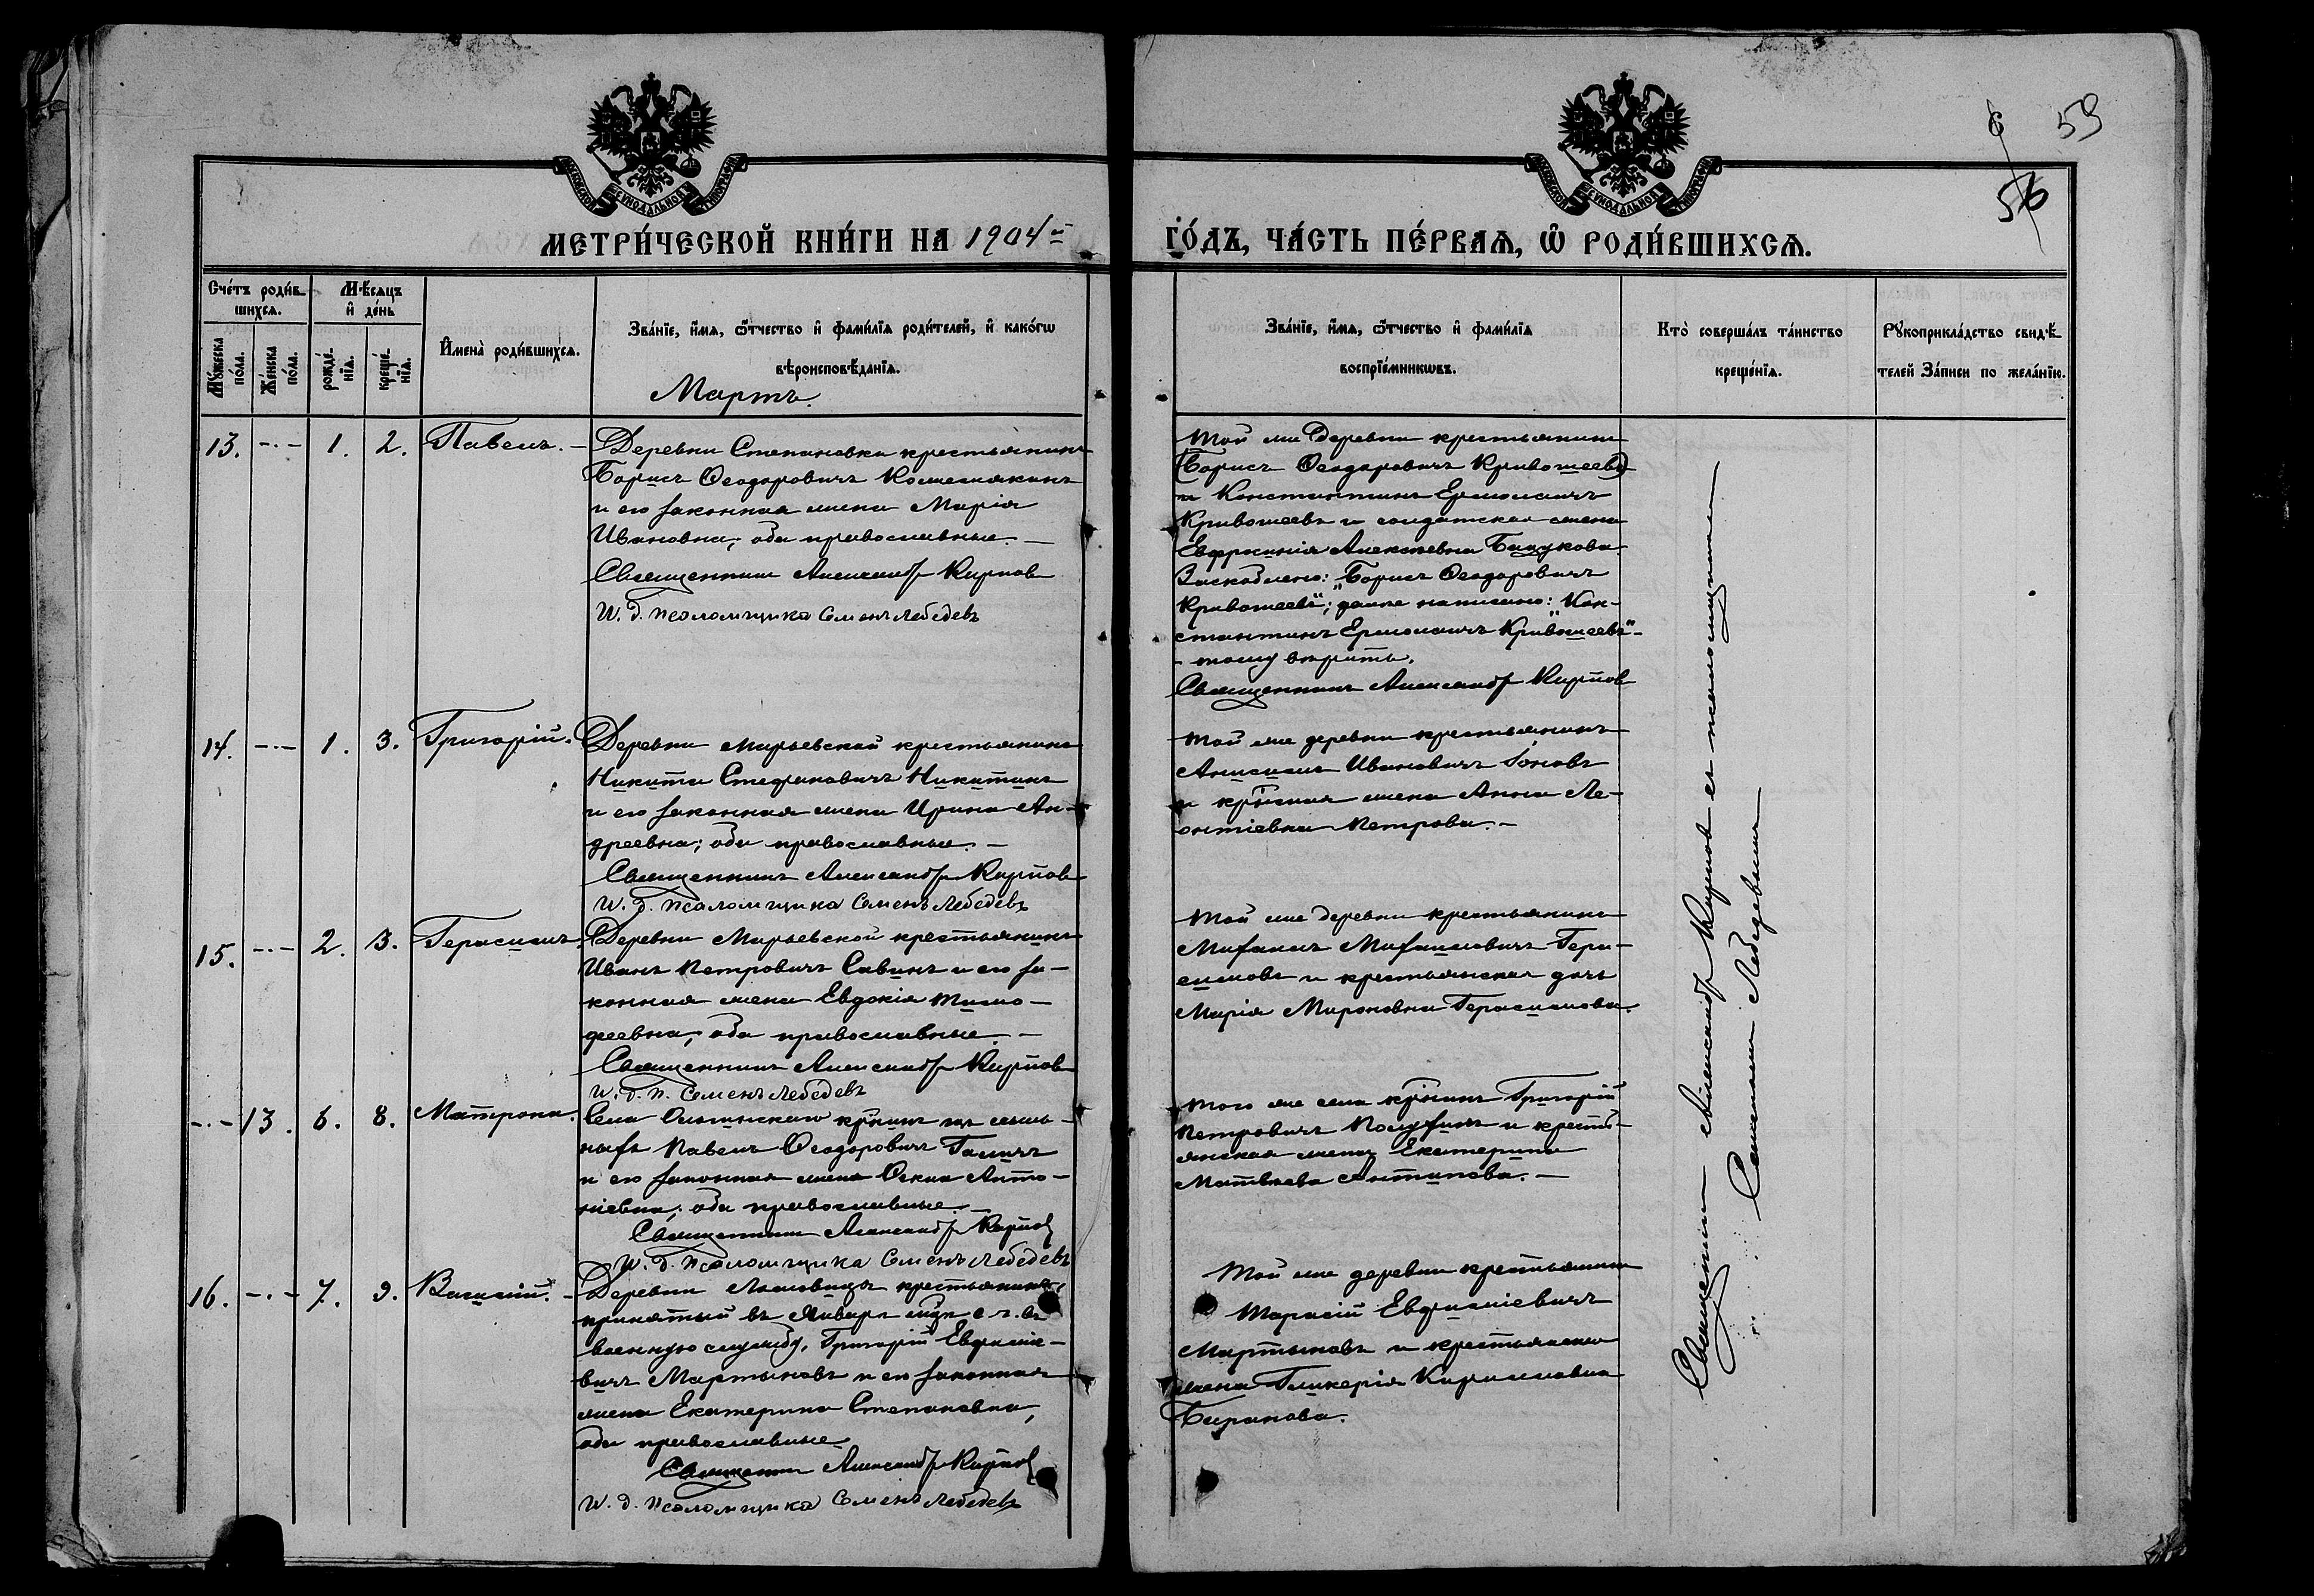 59
6
56
МЕТРИ́ЧЕСКОЙ КНИ́ГИ НА 1904й
ГО́ДЪ, ЧА́СТЬ ПЕ́РВАѦ, Ѡ҆ РОДИ́ВШИХСѦ.
Сче́тъ роди́в-
шихсѧ.
Мѣ́сѧцъ
и҆ де́нь
Мꙋ́жеска по́ла.
Же́нска по́ла.
рожде́-
нїѧ.
креще́-
нїѧ.
И҆мена̀ роди́вшихсѧ.
Зва́нїе, и҆́мѧ, ѻ҆́тчество и҆ фами́лїѧ роди́телей, и҆ како́гѡ
вѣроисповѣ́данїѧ.
Зва́нїе, и҆́мѧ, ѻ҆́тчество и҆ фами́лїѧ
воспрїе́мникѡвъ.
Кто̀ соверша́лъ та́инство
креще́нїѧ.
Рꙋкоприкла́дство свидѣ́-
телей За́писи по жела́нїю.
Мартъ.
13. -·- 1. 2. Павелъ. - Деревни Степановки крестьянинъ
Борисъ Ѳеодоровичъ
и его законная жена Марія
Ивановна, оба православные. -
Священникъ Александръ Карпов
И. д. псаломщика Семенъ Лебедевъ
Той же деревни крестьянинъ
(Борисъ Ѳеодоровичъ Кривошеевъ)
и Константинъ Ермолаичъ
Кривошеевъ и солдатская жена
Евфросинія Алексѣевна
Выскоблено: "Борисъ Ѳеодоровичъ
Кривошеевъ"; далѣе написано: "Кон-
стантинъ Ермолаичъ Кривошеевъ" -
- тому вѣрить.
Священникъ Александръ Карпов
14. -·- 1. 3. Григорій. Деревни Марьевской крестьянинъ
Никита Стефановичъ Никитинъ
и его законная жена Ирина Ан-
дреевна; оба православные. -
Священникъ Александръ Карпов
И. д. псаломщика Семенъ Лебедевъ
Той же деревни крестьянинъ
Анисимъ Ивановичъ Іоновъ
и кр҃ская жена Анна Ле-
онтіевна Петрова. -
15. -·- 2. 3. Герасимъ. Деревни Марьевской крестьянинъ
Иванъ Петровичъ Савинъ и его за-
конная жена Евдокія Тимо-
феевна, оба православные. -
Священникъ Александръ Карпов
И. д. п. Семенъ Лебедевъ
Той же деревни крестьянинъ
Михаилъ Михаиловичъ Гера-
симовъ и крестьянская дочь
Марія Мироновна Герасимова.
-·- 13. 6. 8. Матрона. Села Ольгинскаго
Павелъ Ѳеодоровичъ
и его законная жена Ѳекла Анто-
ніевна; оба православные. -
Священникъ Александръ Карпов
И. д. псаломщика Семенъ Лебедевъ
Того же села Григорій
Петровичъ и кресть-
янская жена Екатерина
Матвѣева Антипова. -
16. -·- 7. 9. Василій. - Деревни крестьянинъ,
принятый въ Январѣ мцѣ с. г. въ
военную службу, Григорій Евфиміе-
вичъ Мартыновъ и его законная
жена Екатерина Степановна,
оба православные
Священникъ Александръ Карпов
И. д. псаломщика Семенъ Лебедевъ
Той же деревни крестьянинъ
Тарасій Евфиміевичъ
Мартыновъ и крестьянская
жена Гликерія Кирилловна
Баранова.
Священникъ Александръ Карпов съ псаломщикомъ
Семеномъ Лебедевымъ